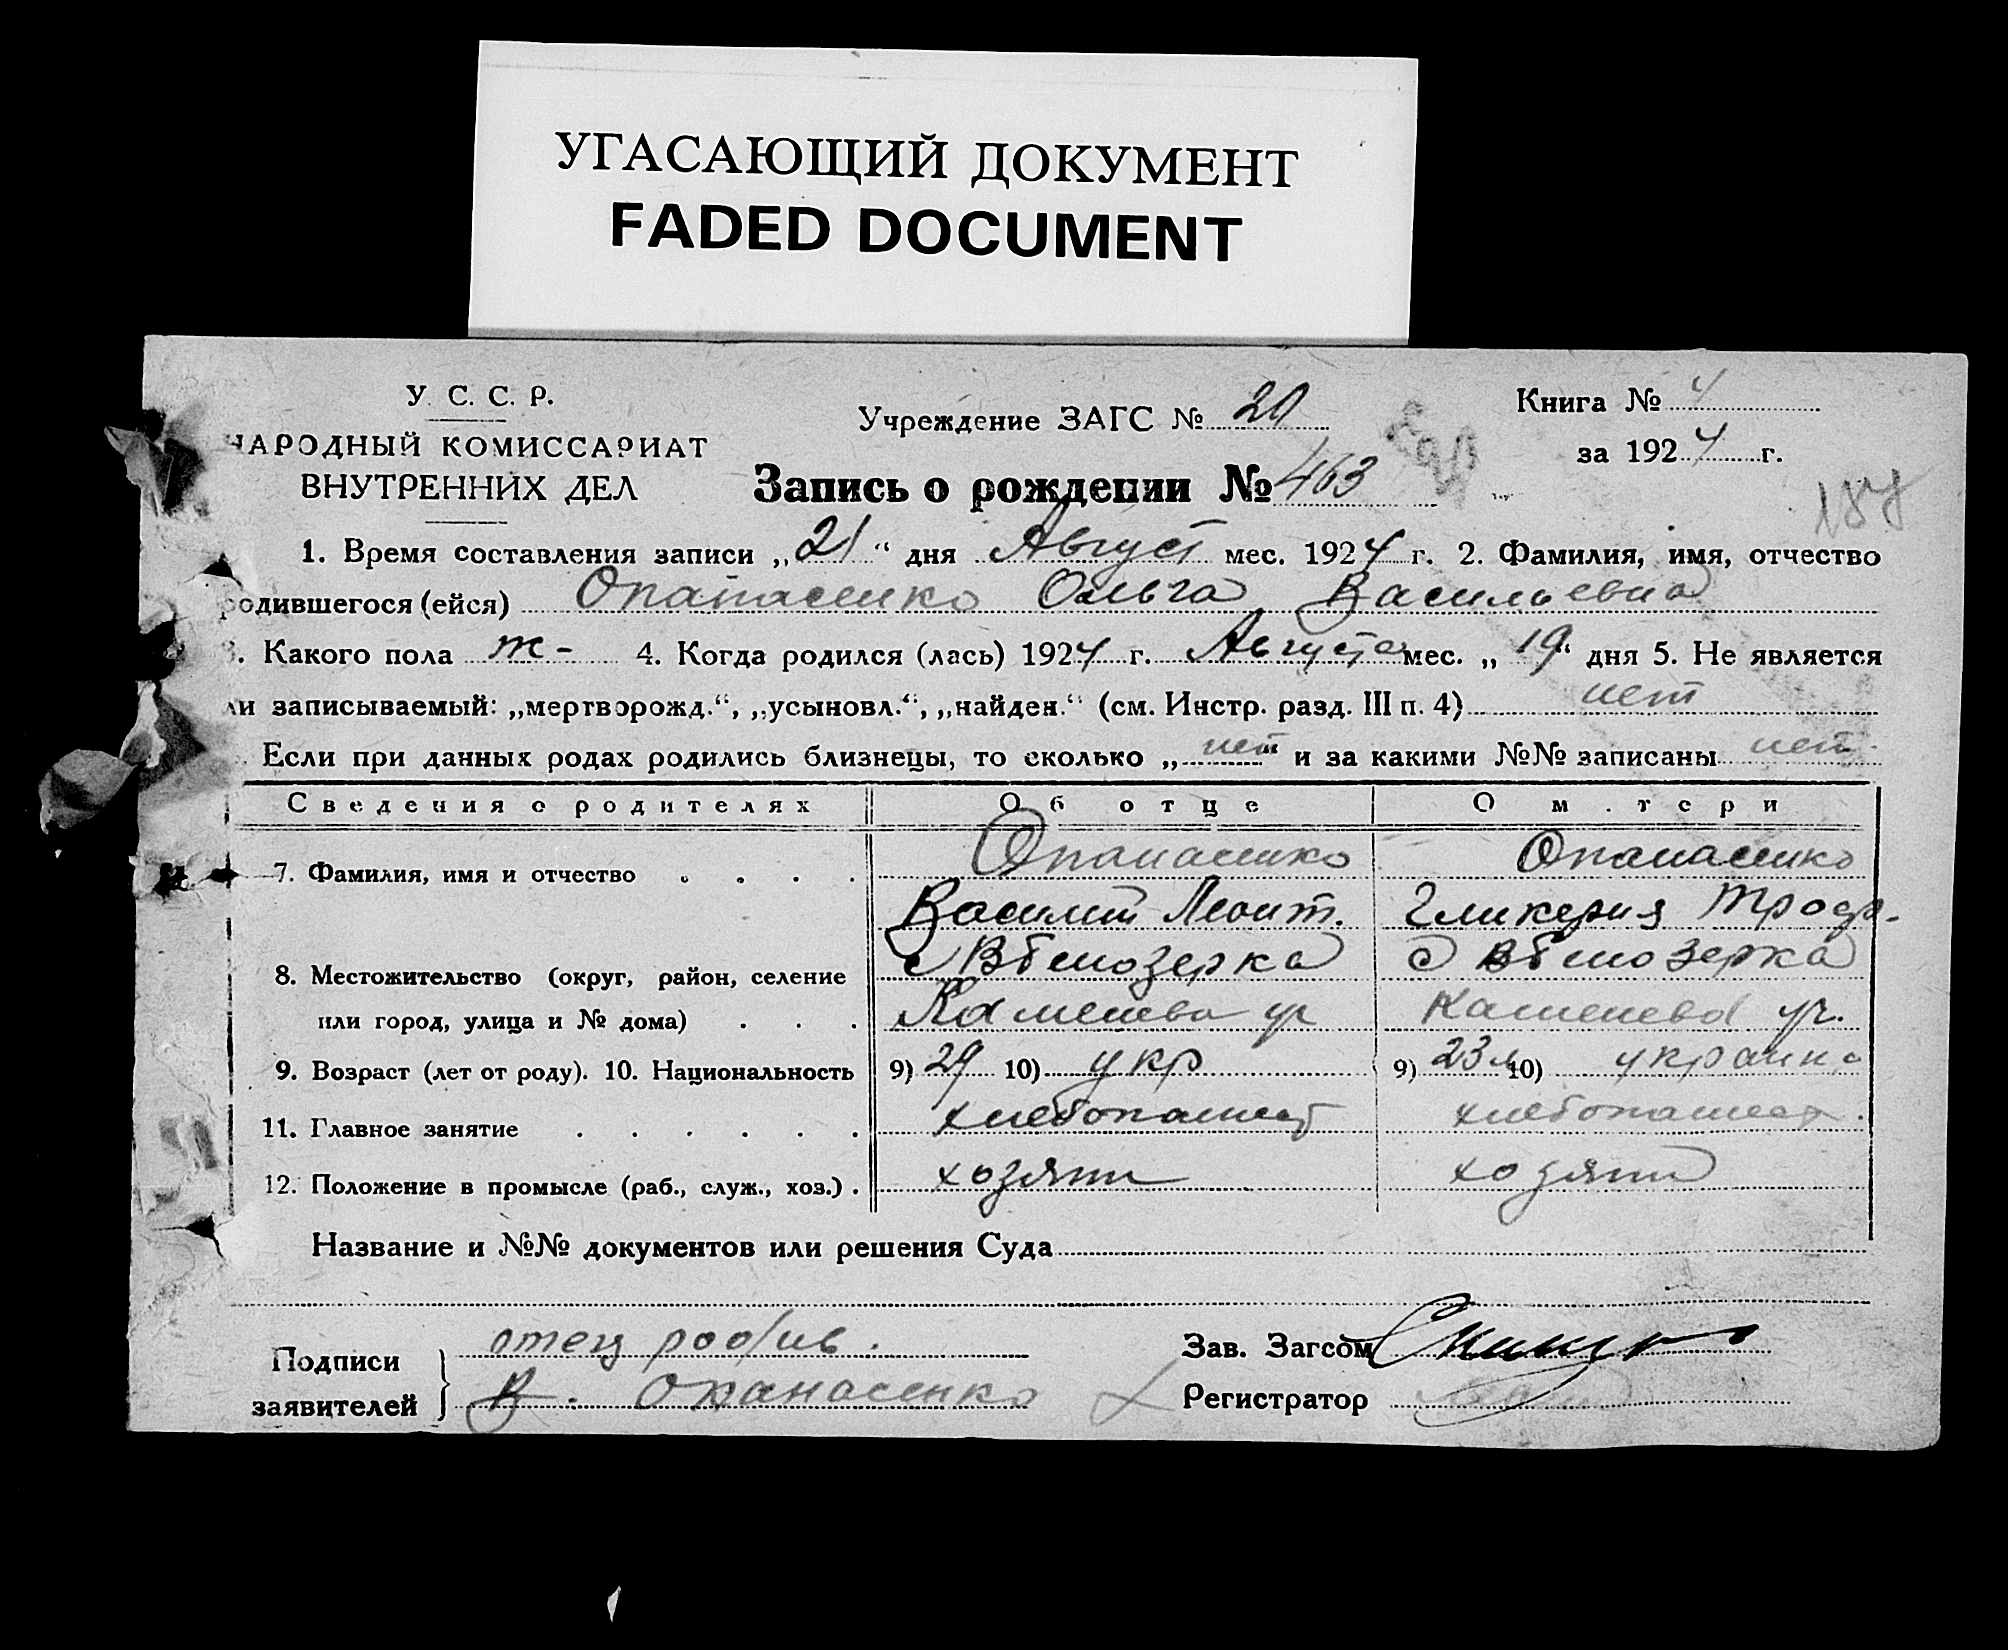 УГАСАЮЩИЙ ДОКУМЕНТ
FADED DOCUMENT
У. С. С. Р.
НАРОДНЫЙ КОМИССАРИАТ
ВНУТРЕННИХ ДЕЛ
Учреждение ЗАГС № 20
Книга № 4
за 1924 г.
Запись о рождении № 463
187
1. Время составления записи „21“ дня Август мес. 1924 г. 2. Фамилия, имя, отчество
родившегося (ейся) Опанасенко Ольга Васильевна
3. Какого пола ж- 4. Когда родился (лась) 1924 г. Августа мес. „19“ дня 5. Не является
ли записываемый: „мертворожд.“, „усыновл.“, „найден.“ (см. Инстр. разд. III п. 4) нет
Если при данных родах родились близнецы, то сколько „нет“ и за какими №№ записаны нет
Сведения о родителях Об отце О м.тери
7. Фамилия, имя и отчество Опанасенко Опанасенко
Василий Леонт. Гликерия Троф.
8. Местожительство (округ, район, селение с Вбелозерка с Вбелозерка
или город, улица и № дома) Каменева ул Каменева ул.
9. Возраст (лет от роду). 10. Национальность 9) 29 10) укр 9) 23 л 10) украин
11. Главное занятие хлебопашест хлебопашест.
12. Положение в промысле (раб., служ., хоз.) хозяин хозяин
Название и №№ документов или решения Суда
Подписи
заявителей
отец
В. Опанасенко
Зав. Загсом
Регистратор